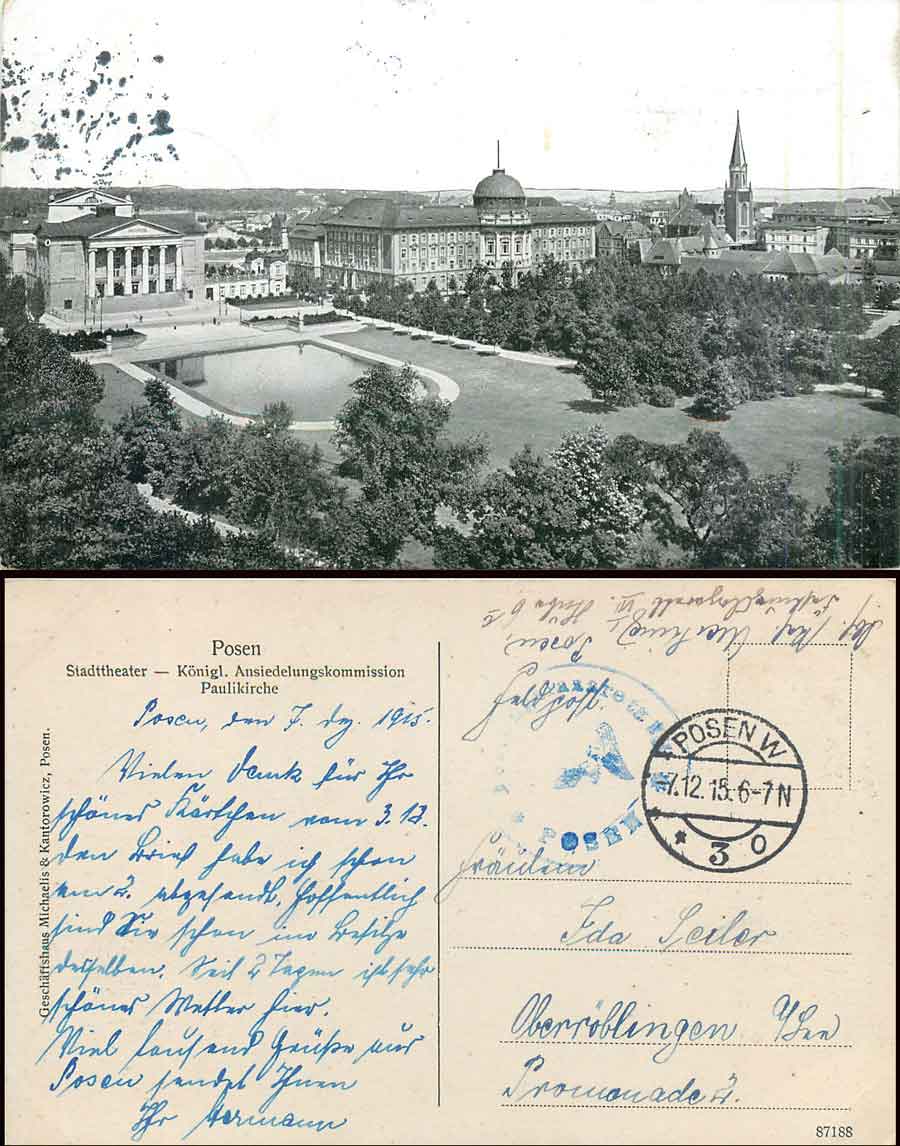 Posen
Stadttheater — Königl. Ansiedelungskommission
Paulikirche
Geschäftshaus Michaelis & Kantorowicz, Posen.
Posen, den 7. Dez. 1915.
Vielen Dank für Ihr
schönes Kärtchen vom 3.12.
den Brief habe ich schon
am 2. abgesandt. Hoffentlich
sind Sie schon im Besitze
desselben. Seit 2 Tagen ist sehr
schönes Wetter hier.
Viel tausend Grüße aus
Posen sendet Ihnen
Ihr Hermann
Posen,
Feldpost.
POSEN
POSEN W
-7.12.15.6-7N
* 3 o
Fräulein
Ida Seiler
Oberröblingen a/See
Promenade 2.
87188